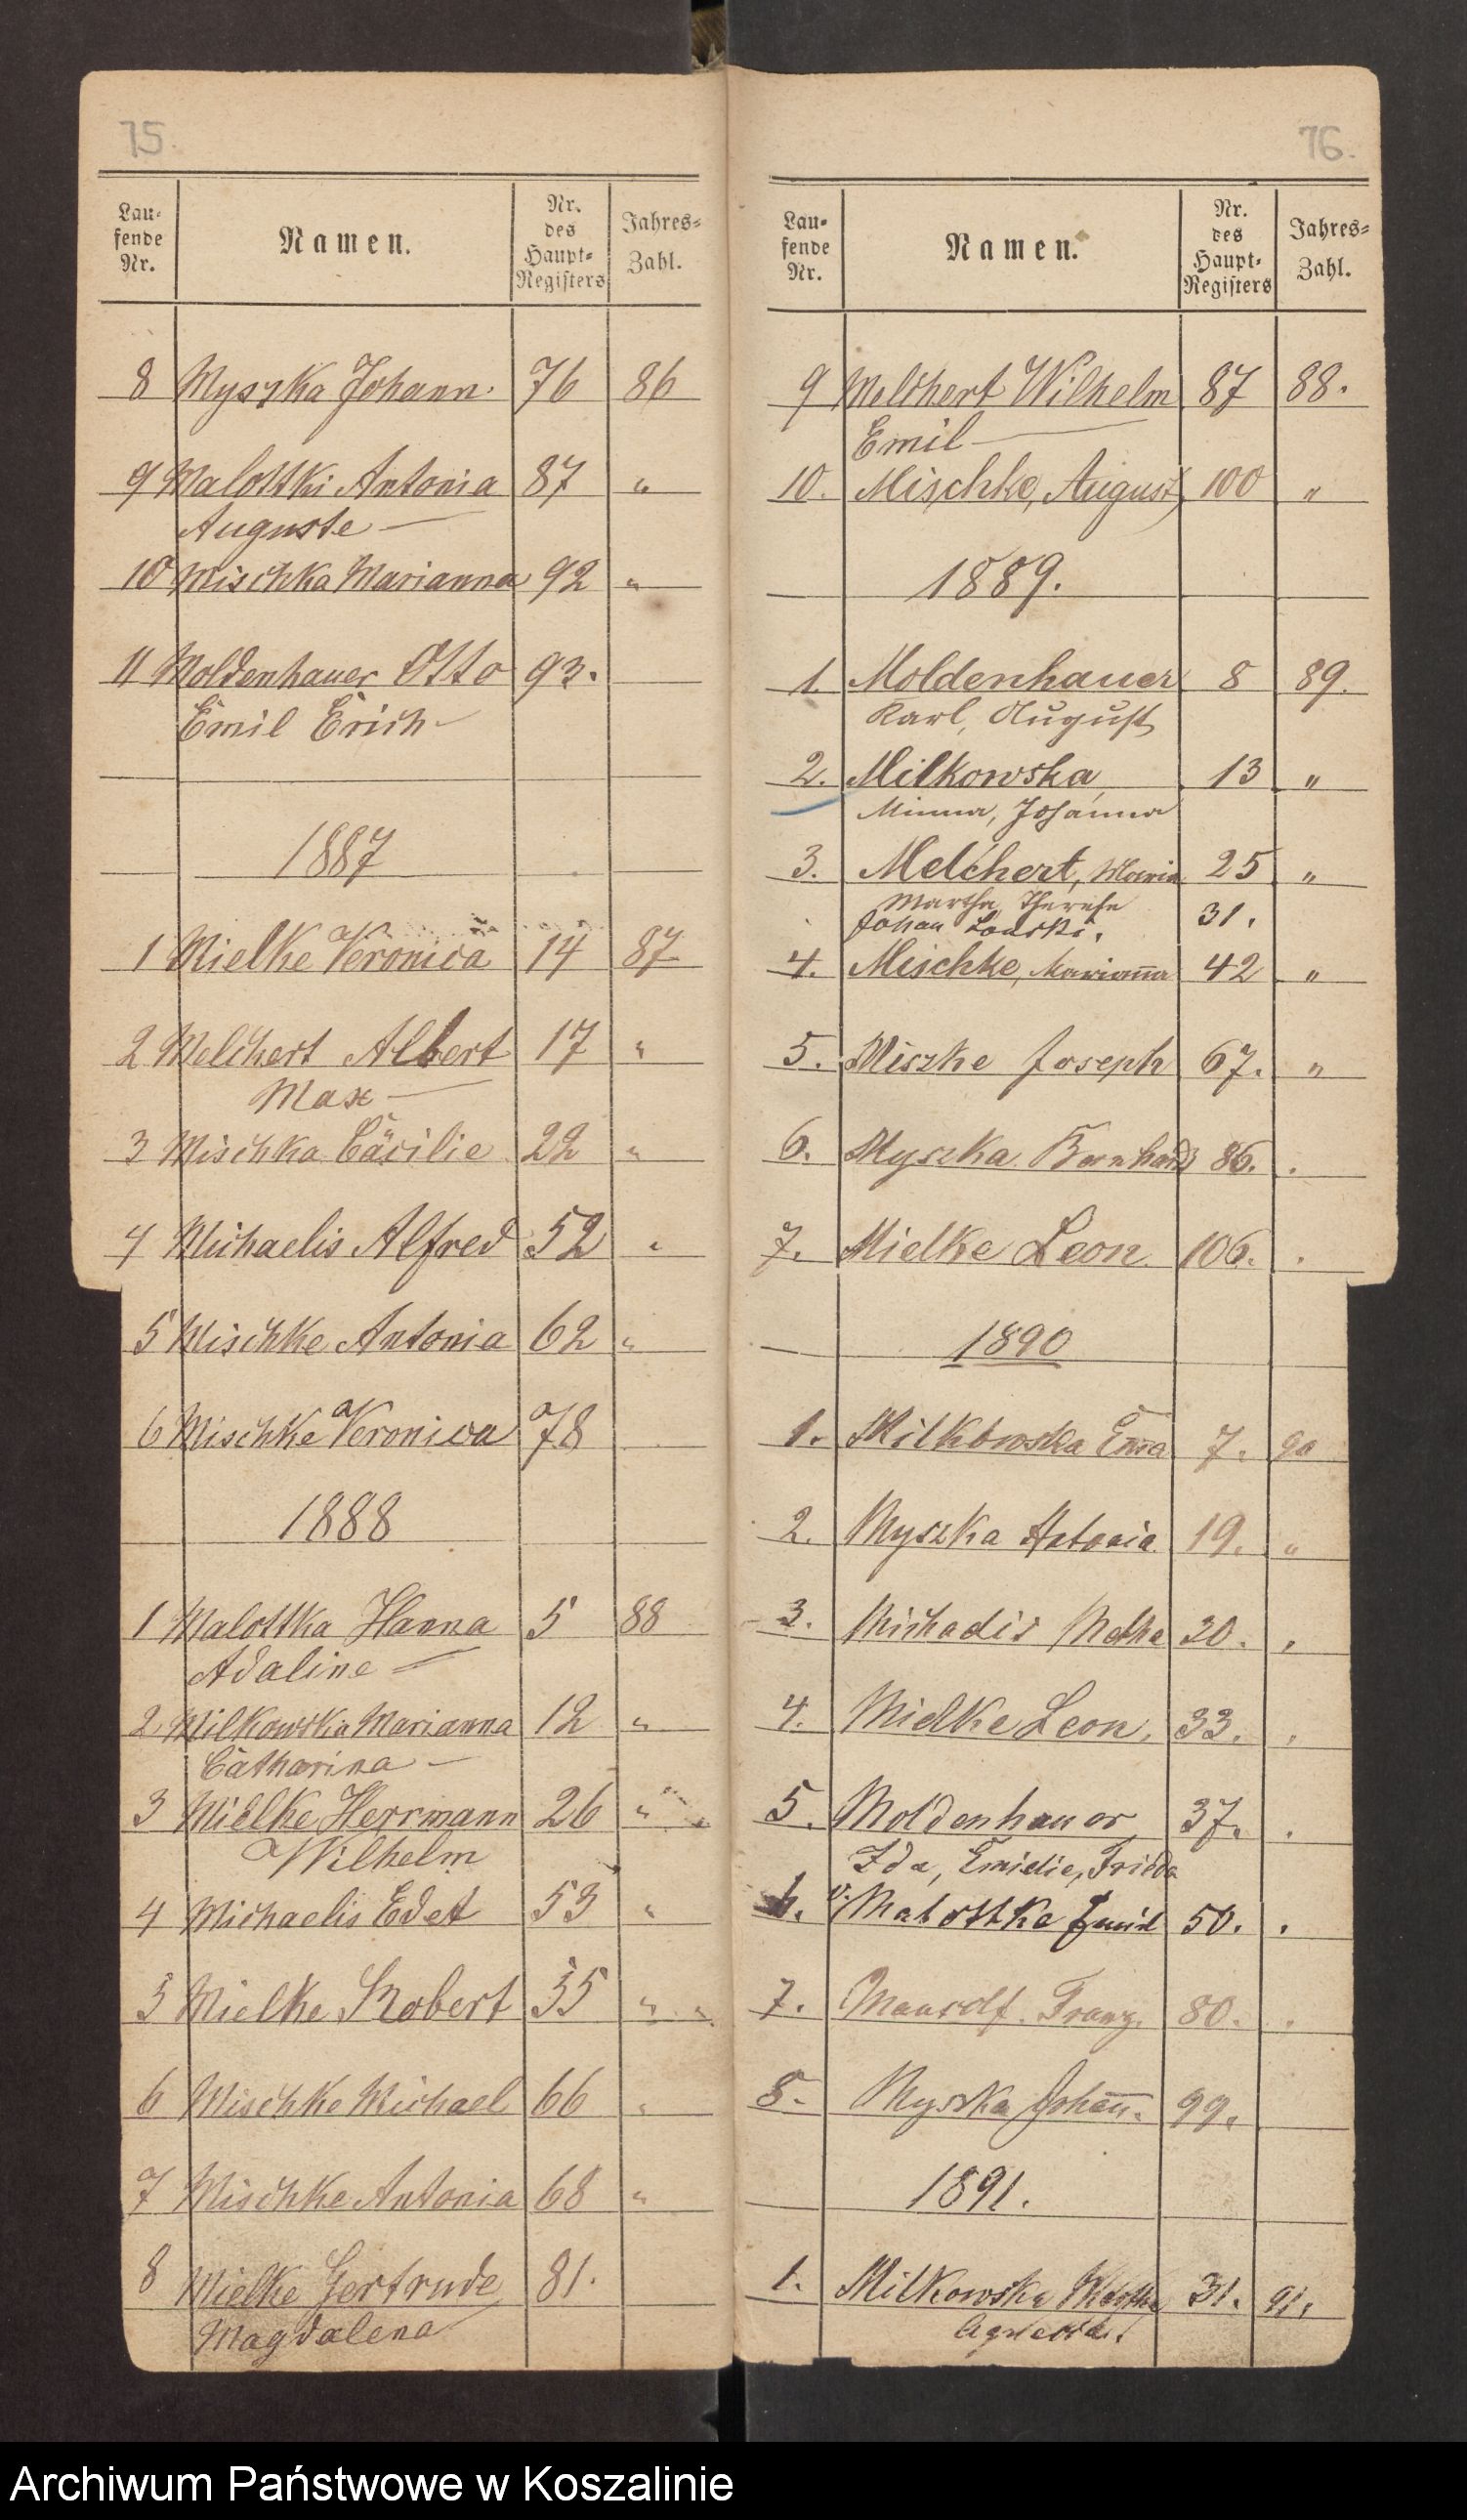 75.
Lau-
fende
Nr.
Namen.
Nr.
des
Haupt-
Registers
Jahres-
Zahl.
8 Myszka Johann. 76 86
9 Malottki Antonia 87 "
Auguste —
10 Mischka Marianna 92 "
11 Moldenhauer Otto 93.
Emil Erich —
1887
1 Mielke Veronica 14 87
2 Melchert Albert 17 "
Max —
3 Mischka Cäcilie 22 "
4 Michaelis Alfred 52 "
5 Mischke Antonia 62 "
6 Mischke Veronica 78
1888
1 Malottka Hanna 5 88
Adaline —
2 Milkowska Marianna 12 "
Catharina —
3 Mielke Herrmann 26 "
Wilhelm
4 Michaelis Edet 53 "
5 Mielke Robert 55 "
6 Mischke Michael 66 "
7 Mischke Antonia 68 "
8 Mielke Gertrude 81.
Magdalena
76.
Lau-
fende
Nr.
Namen.
Nr.
des
Haupt-
Registers
Jahres-
Zahl.
9 Melchert Wilhelm 87 88.
Emil —
10. Mischke, August 100 "
1889.
1. Moldenhauer 8 89.
Karl, August
2. Milkowska, 13 "
Minna, Johanna
3. Melchert, Maria 25 "
Martha Therese
Johan 31.
4. Mischke, Marianna 42 "
5. Miszke Joseph 67. "
6. Myszka Bernhard 86. .
7. Mielke Leon 106. .
1890
1. Milkowska Emma 7. 90
2. Myszka Antonia 19. "
3. Michaelis 30. "
4. Mielke Leon. 33. "
5. Moldenhauer, 37. .
Ida, Emielie, Frieda
6. v. Malottke Emil 50. .
7. Franz. 80. .
8. Myszka Johann. 99.
1891.
1. Milkowska Martha 31. 91.
Archiwum Państwowe w Koszalinie